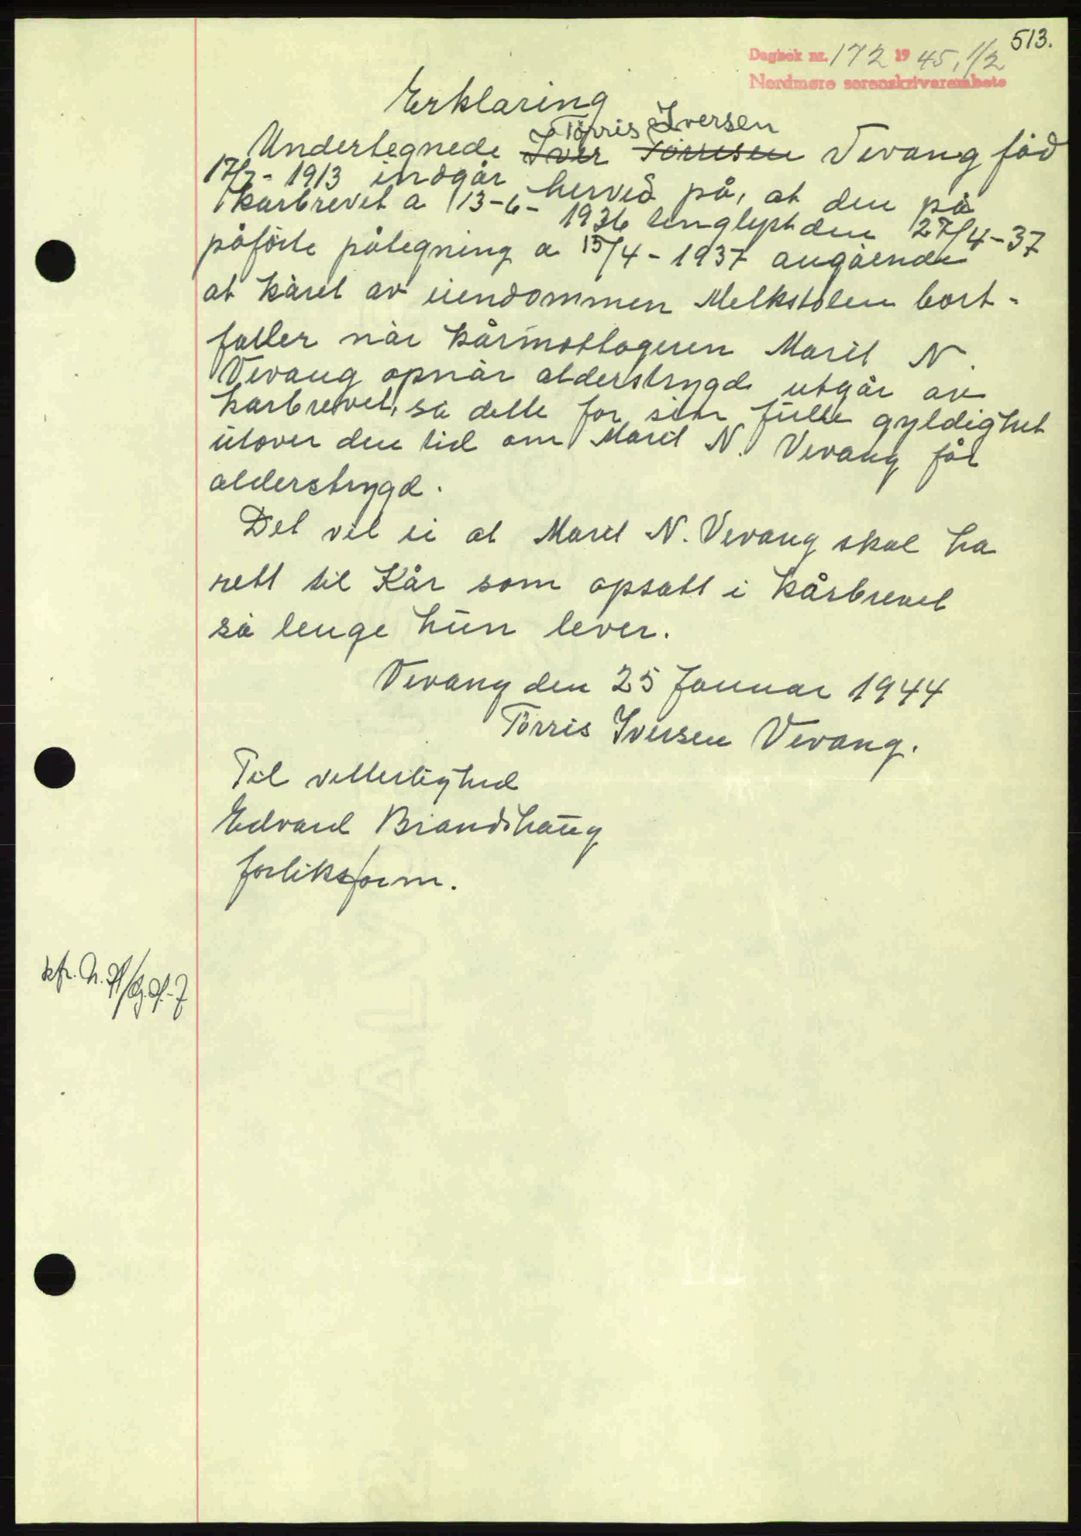 513.
Dagbok nr. 172 1945, 1/2
Nordmøre sorenskriverembete
Erklæring
Törris Iversen
Undertegnede Iver Törresen Vevang föd
17/7 - 1913 indgår herved på, at den på
kårbrevet a 13-6- 1936 tinglyst den 27/4-37
påförte påtegning a 15/4 - 1937 angående
at kåret av eiendommen Melkstolen bort-
faller når kårmottageren Marit N.
Vevang opnår alderstrygd utgår av
kårbrevet, så dette for sin fulle gyldighet
utover den tid om Marit N. Vevang får
alderstrygd.
Det vil si at Marit N. Vevang skal ha
rett til Kår som opsatt i kårbrevet
så lenge hun lever.
Vevang den 25 Januar 1944
Törris Iversen Vevang.
Til vitterlighed
Edvard Brandshaug
forliksform.
kfr.